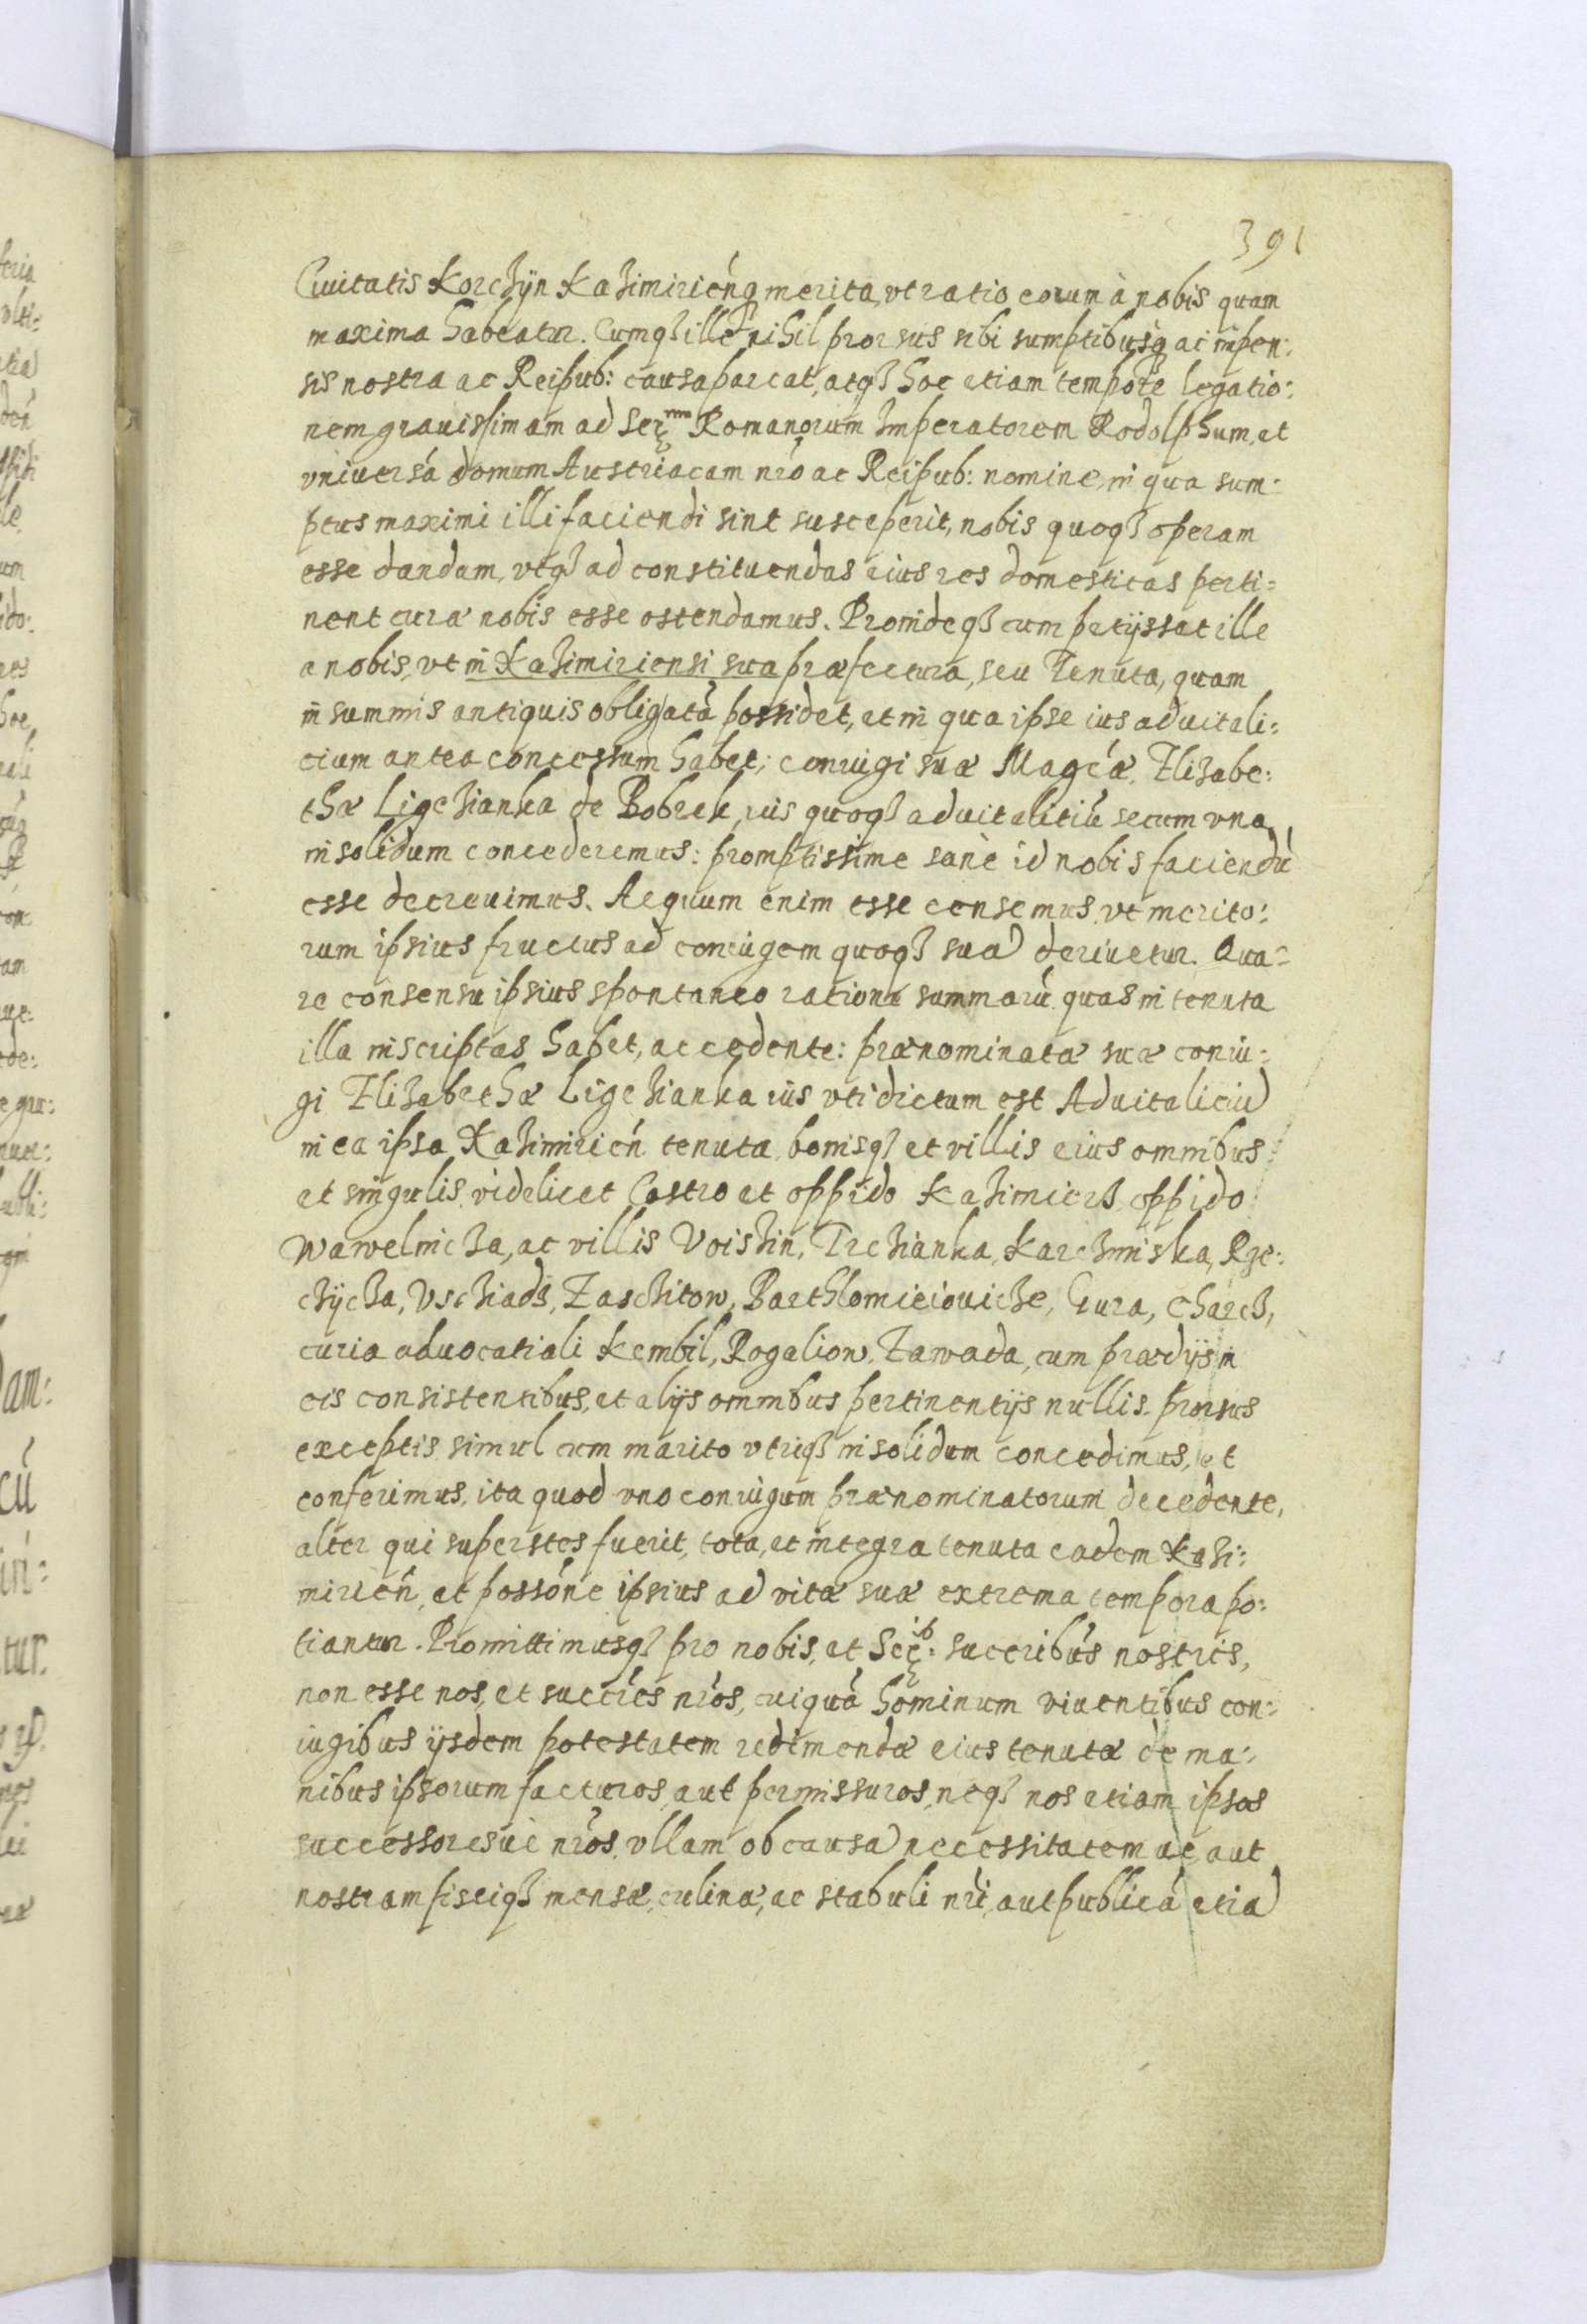 391
Ciuitatis Korchÿn Kazimirień q merita, vt ratio eorum à nobis quam
maxima habeatur. Cumqȝ ille nihil prorsus sibi sumptibusq ac impen:
sis nostra ac Reipub: causa parcat, atqȝ hoc etiam tempore legatio:
nem grauissimam ad Ser.mm Romanorum Imperatorem Rodolphum, et
vniuersá domum Austriacam nr̃o ac Reipub: nomine, in qua sum:
ptus maximi illi faciendi sint susceperit, nobis quoqȝ operam
esse dandam, vtqȝ ad constituendas eius res domesticas perti:
nent curæ nobis esse ostendamus. Proindeqȝ cum petijssat ille
a nobis, vt in Kazimiriensi sua præfectura, seu Tenuta, quam
in summis antiquis obligatá possidet, et in qua ipse ius aduitali:
cium antea concessum habet; coniugi suæ Magcæ. Elizabe:
thæ Ligezianka de Bobrek, ius quoqȝ aduitalitiú secum vna
in solidum concederemus: promptissime sanè id nobis faciendú
esse decreuimus. Aequum enim esse censemus, vt merito:
rum ipsius fructus ad coniugem quoqȝ sua deriuetur. Qua:
re consensu ipsius spontaneo ratione summarú quas in tenuta
illa inscriptas habet, accedente: prænominatæ suæ coniu:
gi Elizabethæ Ligezianka ius vti dictum est Aduitaliciu
in ea ipsa Kazimirień tenuta, bonisqȝ et villis eius omnibus
et singulis, videlicet Castro et oppido Kazimierz, oppido
Wawelnicza, ac villis Voishin, Trzcianka, Karczmiska, Rze:
czÿcza, Vschiadz, Zaschitow, Barthlomieiouicze, Gura, Charcz,
curia aduocatiali Kembil, Rogaliow, Zawada, cum prædijs in
eis consistentibus, et alijs omnibus pertinentijs nullis prorsus
exceptis, simul cum marito vtriqȝ in solidum concedimus, et
conferimus, ita quod vno coniugum prænominatorum decedente,
alter qui superstes fuerit, tota, et integra tenuta eadem Kazi:
mirień, et possóne ipsius ad vitæ suæ extrema tempora po:
tiantur. Promittimusqȝ pro nobis, et Ser.ib: succribús nostris,
non esse nos, et succrés nr̃os, cuiquá hominum viuentibus con:
iugibus ijsdem potestatem redimendæ eius tenutæ de ma:
nibus ipsorum facturos, aut permissuros, neqȝ nos etiam ipsos
successoresuè nr̃os, vllam ob causa necessitatem ue aut
nostram fisciqȝ mensæ, culinæ, ac stabuli nr̃i, aut publicá etia